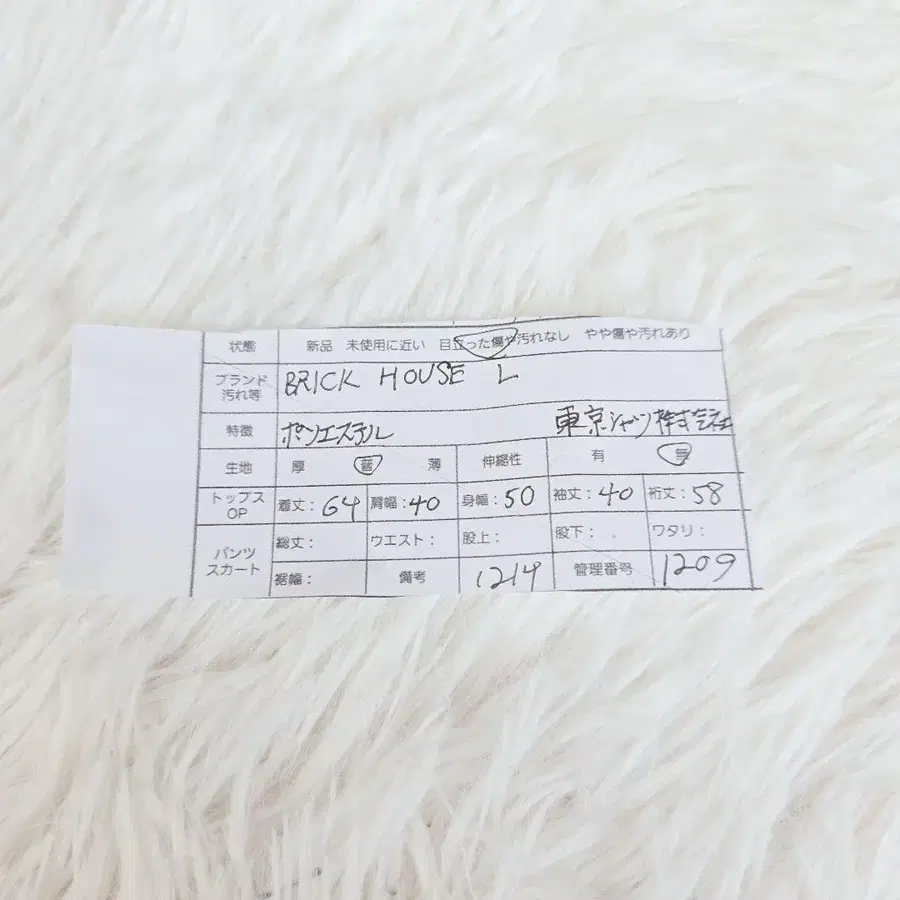 状態 新品 未使用に近い 目立った傷や汚れなし やや傷や汚れあり
ブランド
汚れ等 BRICK HOUSE L
特徴 ポリエステル 東京シャツ株式会社
生地 厚 普 薄 伸縮性 有 無
トップス
OP 着丈:64 肩幅:40 身幅:50 袖丈:40 裄丈:58
パンツ
スカート 総丈: ウエスト: 股上: 股下: ワタリ:
裾幅: 備考 1214 管理番号 1209